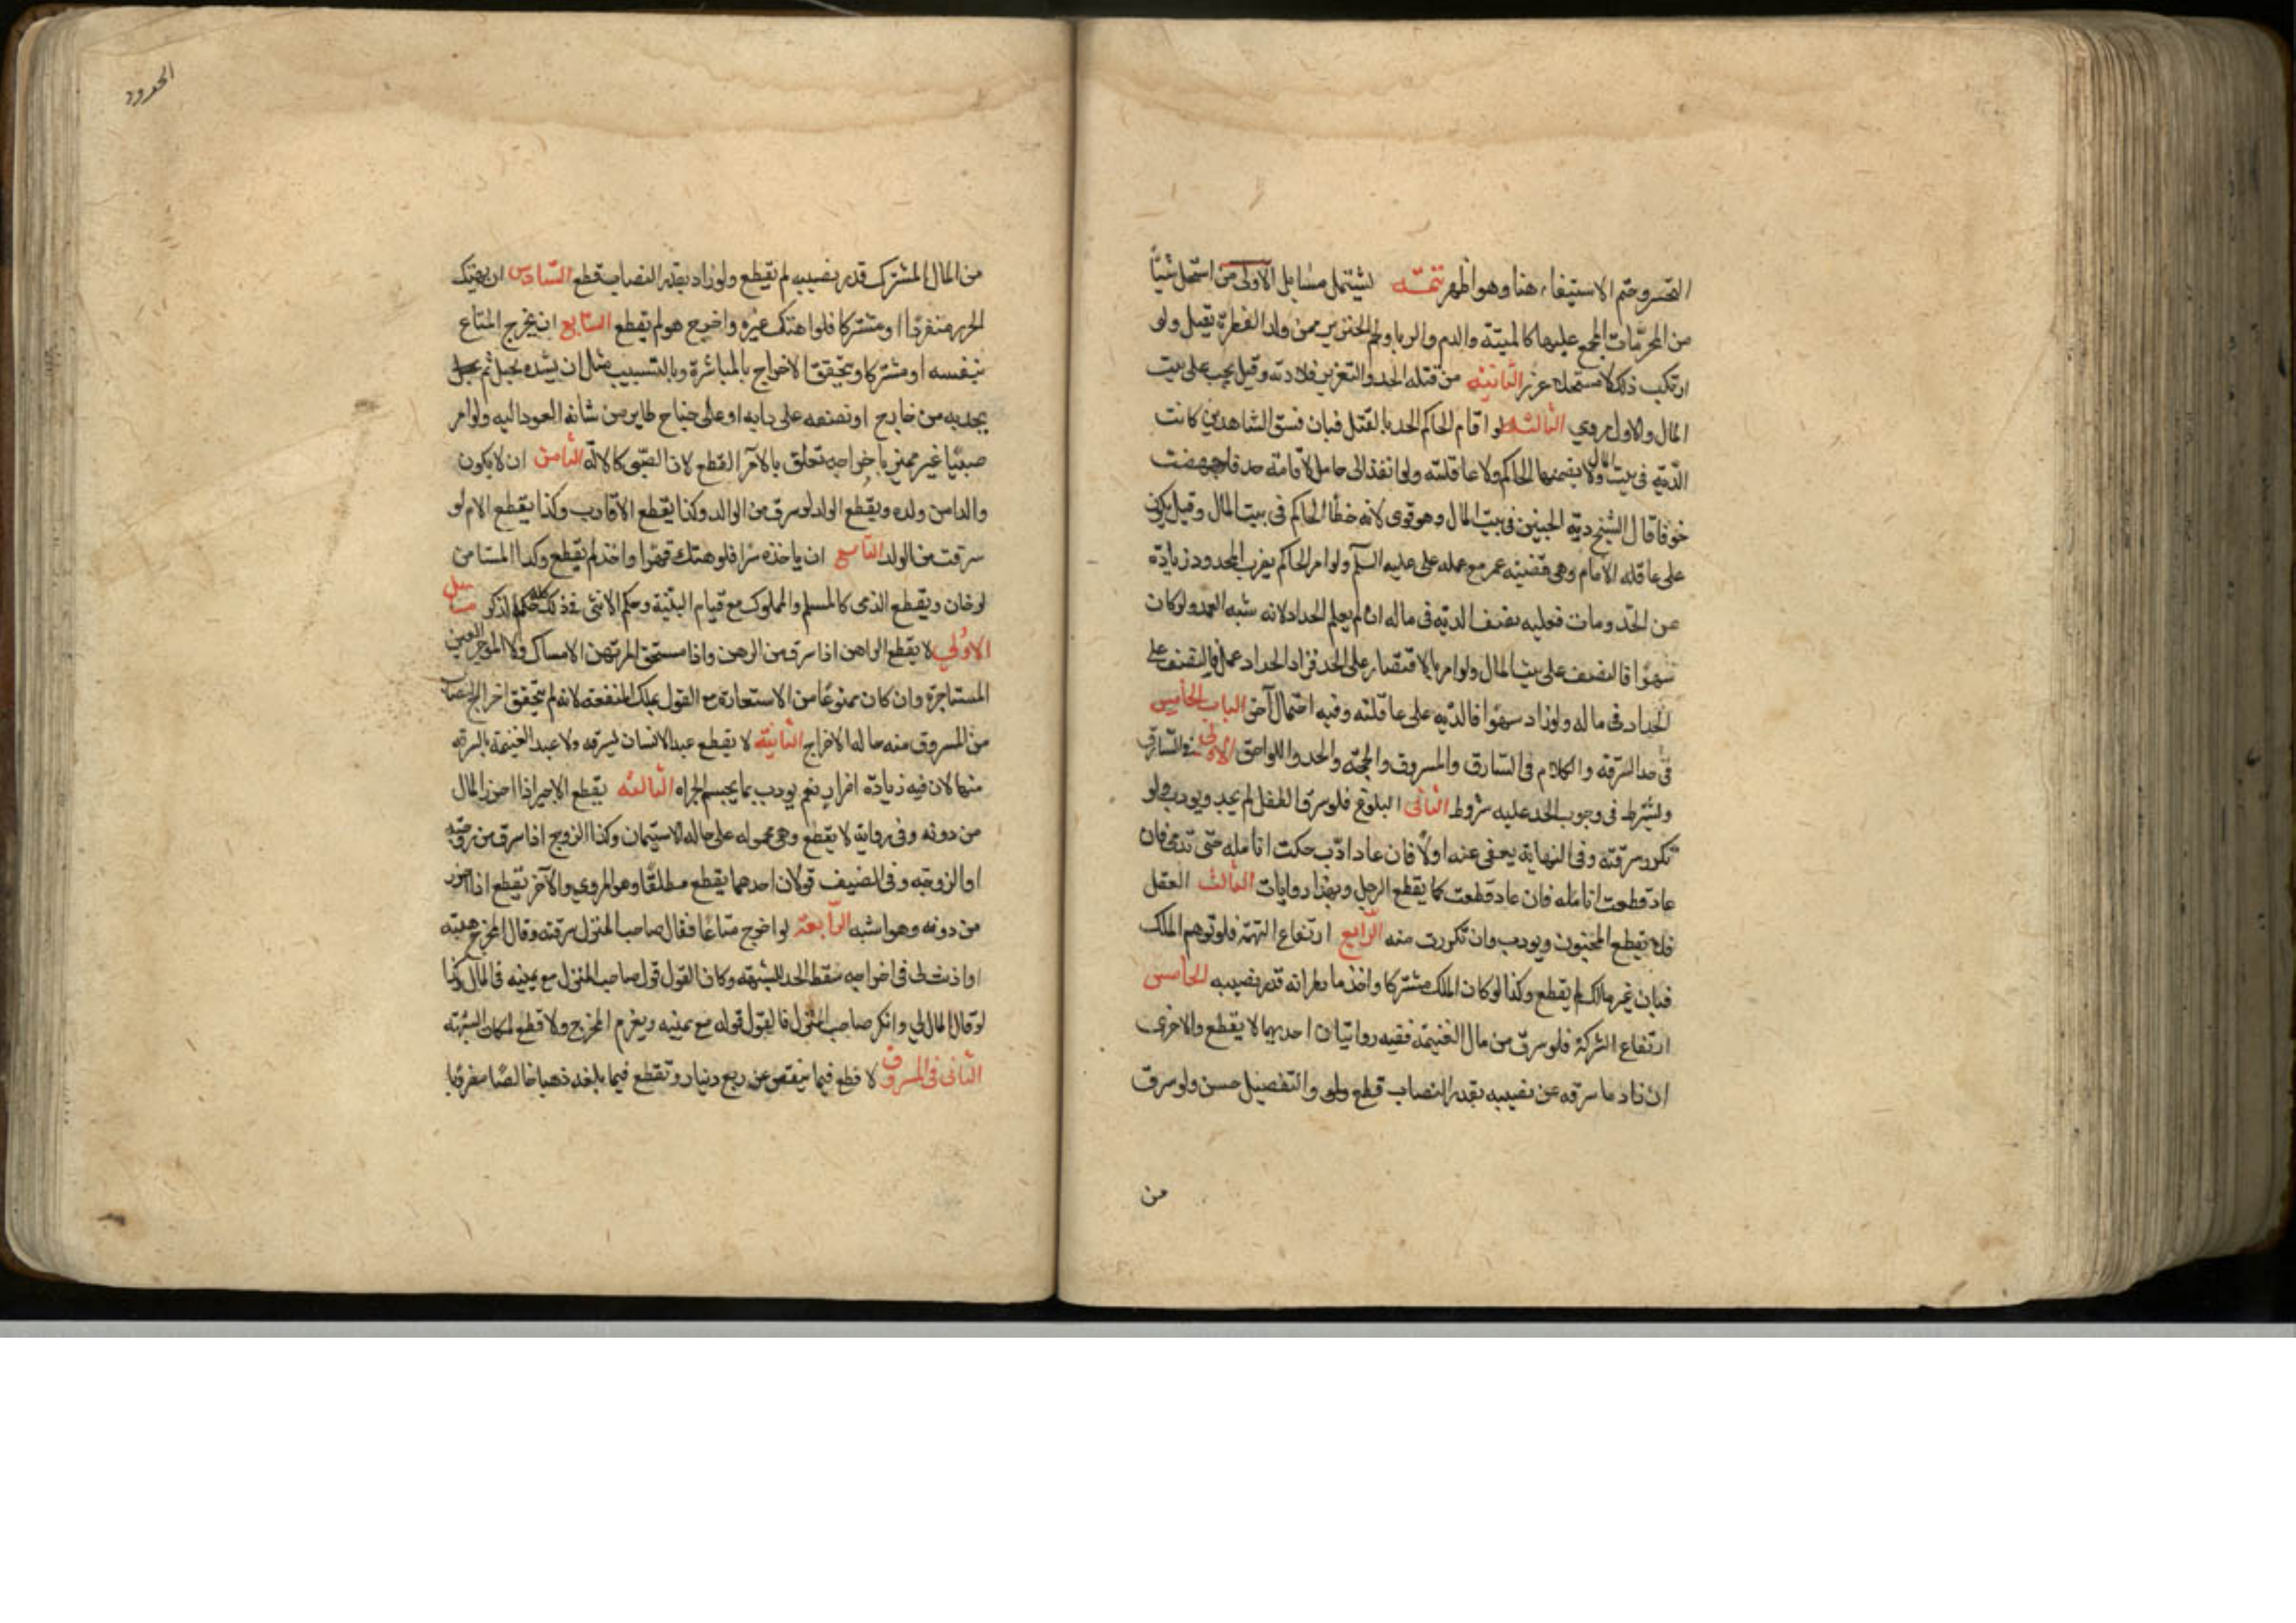 التحسر وختم الاستيفاء هنا وهو اظهر تتمّه تشتمل مسايل الاولى من استحل شيئًا
من المحرّمات المجمع عليها كالميتة والدم والربا ولحم الخنزير ممن ولد الفطرة يقتل ولو
ارتكب ذلك لا مستحلا عزر الثانيه من قتله الحد والتعزير فلا دية وقيل يجب على بيت
المال والاول مروي الثالثه لو اقام الحاكم الحد بالقتل فبان فسق الشاهدين كانت
الدّية في بيت المال ولا يضمنها الحاكم ولا عاقلته ولو انفذ الى حامل لاقامة حد فاجهضت
خوفا قال الشيخ دية الجنين في بيت المال وهو قوى لانه خطأ الحاكم في بيت المال وقيل يكون
على عاقله الامام وهى قضيته عمر مع على عليه السلم ولو امر الحاكم بضرب المحدود زيادة
عن الحّد ومات فعليه نصف الديّه فى ماله ان لم يعلم الحداد لانه شبه العمد ولو كان
سهوًا فالنصف على بيت المال ولو امر بالاقتصار على الحد فزاد الحداد عمدا فالنصف على
الحداد فى ماله ولو زاد سهوًا فالديه على عاقلته وفيه احتمال آخر الباب الخامس
فى حد السرقه والكلام فى السّارق والمسروق والحجّه والحد واللواحق الاولى فى السّارق
ويُشترط فى وجوب الحد عليه شروط الثانى البلوغ فلو سرق الطفل لم يحد ويودب ولو
تكررت سرقته وفى النهاية يعفى عنه اولًا فان عاد ادّب حكت انامله حتى تدمى فان
عاد قطعت انامله فان عاد قطعت كما يقطع الرجل وبهذا روايات الثالث العقل
فلا يقطع المجنون ويودب وان تكررت منه الرابع ارتفاع التهمة فلو توهم الملك
فبان غير مالك لم يقطع وكذا لو كان الملك مشتركا واخذ ما يظن انه قدر نصيبه الخامس
ارتفاع الشركة فلو سرق من مال الغنيمه ففيه روايتان احديهما لا يقطع والاخرى
ان زاد ما سرقه عن نصيبه بقدر النصاب قطع والتفصيل حسن ولو سرق
من
الحدود
من المال المشترك قدر نصيبه لم يقطع ولو زاد بقدر النصاب قطع السّادس ان يهتك
الحرز منفردًا او مشتركا فلو هتك غيره واخرج هو لم يقطع السّابع ان يخرج المتاع
بنفسه او مشتركا ويتحقق الاخراج بالمباشرة وبالتسبيب مثل ان يشده بحبل ثم
يجذبه من خارج او يضعه على دابه او على جناح طاير من شانه العود اليه ولو امر
صبيًا غير مميز باخراجه تعلق بالآمر القطع لان الصّبى كالآلة الثامن ان لا يكون
والدا من ولده ويقطع الولد لو سرق من الوالد وكذا يقطع الاقارب وكذا يقطع الام لو
سرقت من الولد التاسع ان ياخذه سرًا فلو هتك قهرًا واخذ لم يقطع وكذا المستامن
لو خان ويقطع الذمى كالمسلم والمملوك مع قيام البيّنة وحكم الانثى فى ذلك كله حكم الذكر مسايل
الاولى لا يقطع الراهن اذا سرق من الرهن واذا استحق المرتهن الامساك ولا الموجر العين
المستاجرة وان كان ممنوعًا من الاستعادة مع القول بملك المنفعه لانه لم يتحقق اخراج
من المسروق منه حالة الاخراج الثانيّة لا يقطع عبد الانسان بسرقه ولا عبد الغنيمة بالسرقه
منها لان فيه زيادة اضرار نعم يودب بما يحسم الجراه الثالثه يقطع الاجير اذا احرز المال
من دونه وفى رواية لا يقطع وهى محموله على حاله الاستيمان وكذا الزوج اذا سرق من زوجته
او الزوجه وفى الضيف قولان احدهما يقطع مطلقًا وهو المروي والآخر يقطع اذا احرز
من دونه وهو اشبه الرّابعة لو اخرج متاعًا فقال صاحب المنزل سرقته وقال المخرج وهبته
او اذنت لى فى اخراجه سقط الحد للشبهه وكان القول قول صاحب المنزل مع يمينه فى المال وكذا
لو قال المال لي وانكر صاحب المنزل فالقول قوله مع يمينه ويغرم المخرج ولا قطع لمكان الشبهه
الثانى فى المسروق لا قطع فيما ينقص عن ربع دينار وتقطع فيما بلغه ذهبا خالصًا مضروبا